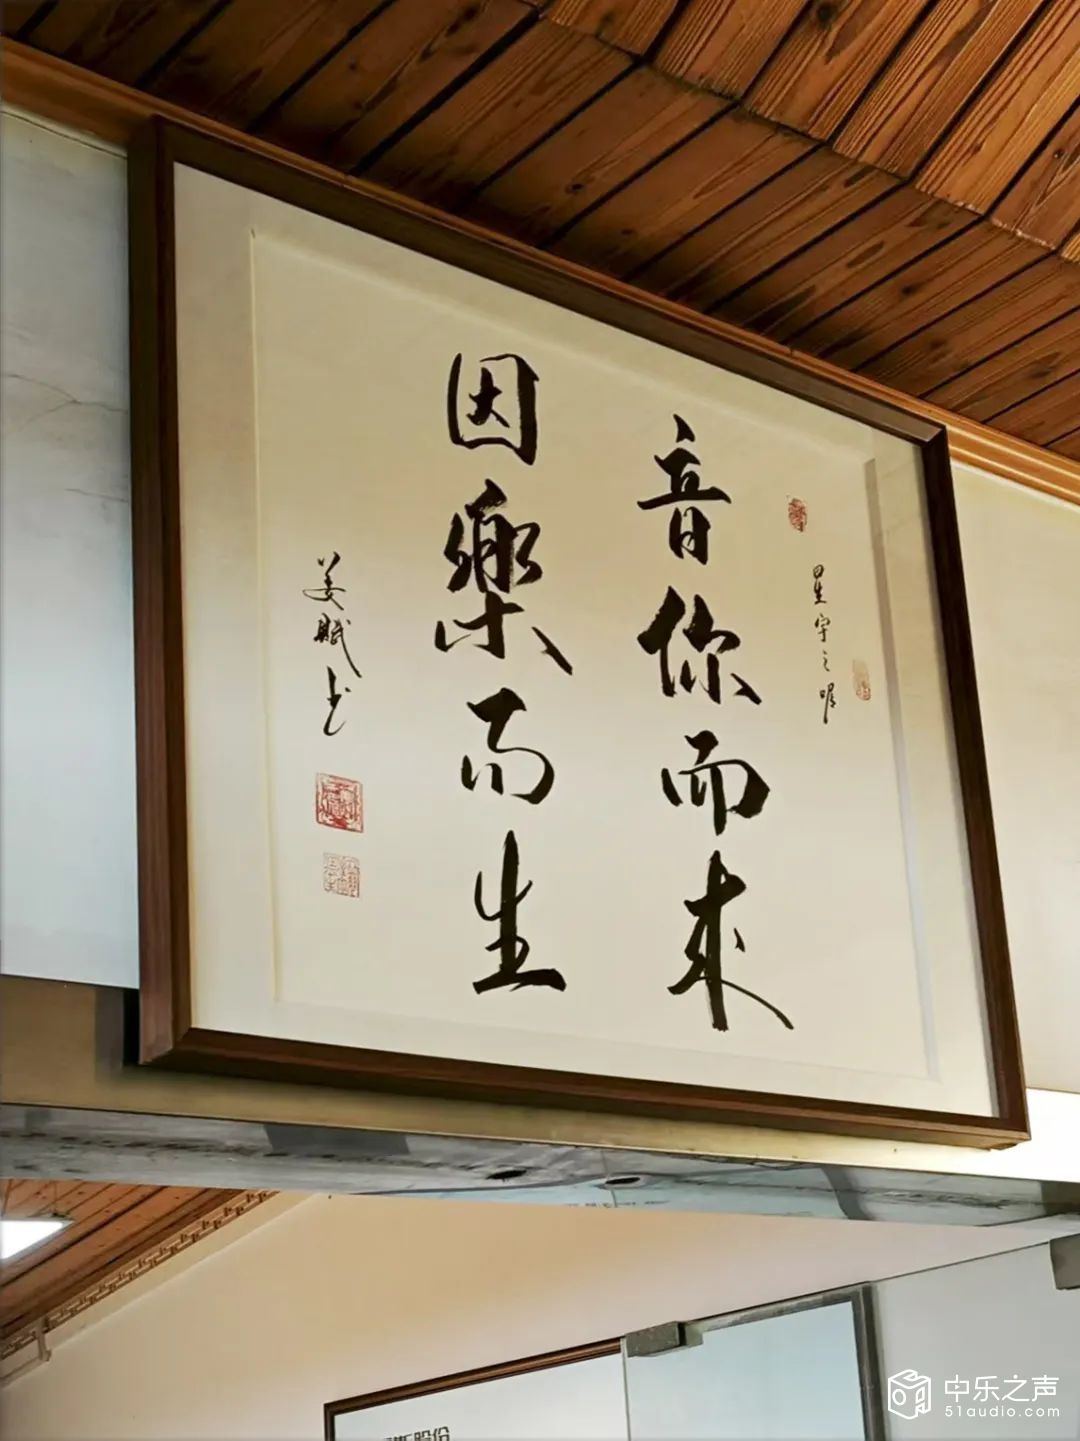 音你而来
因樂而生
姜賦书
股份
中乐之声
51audio.com